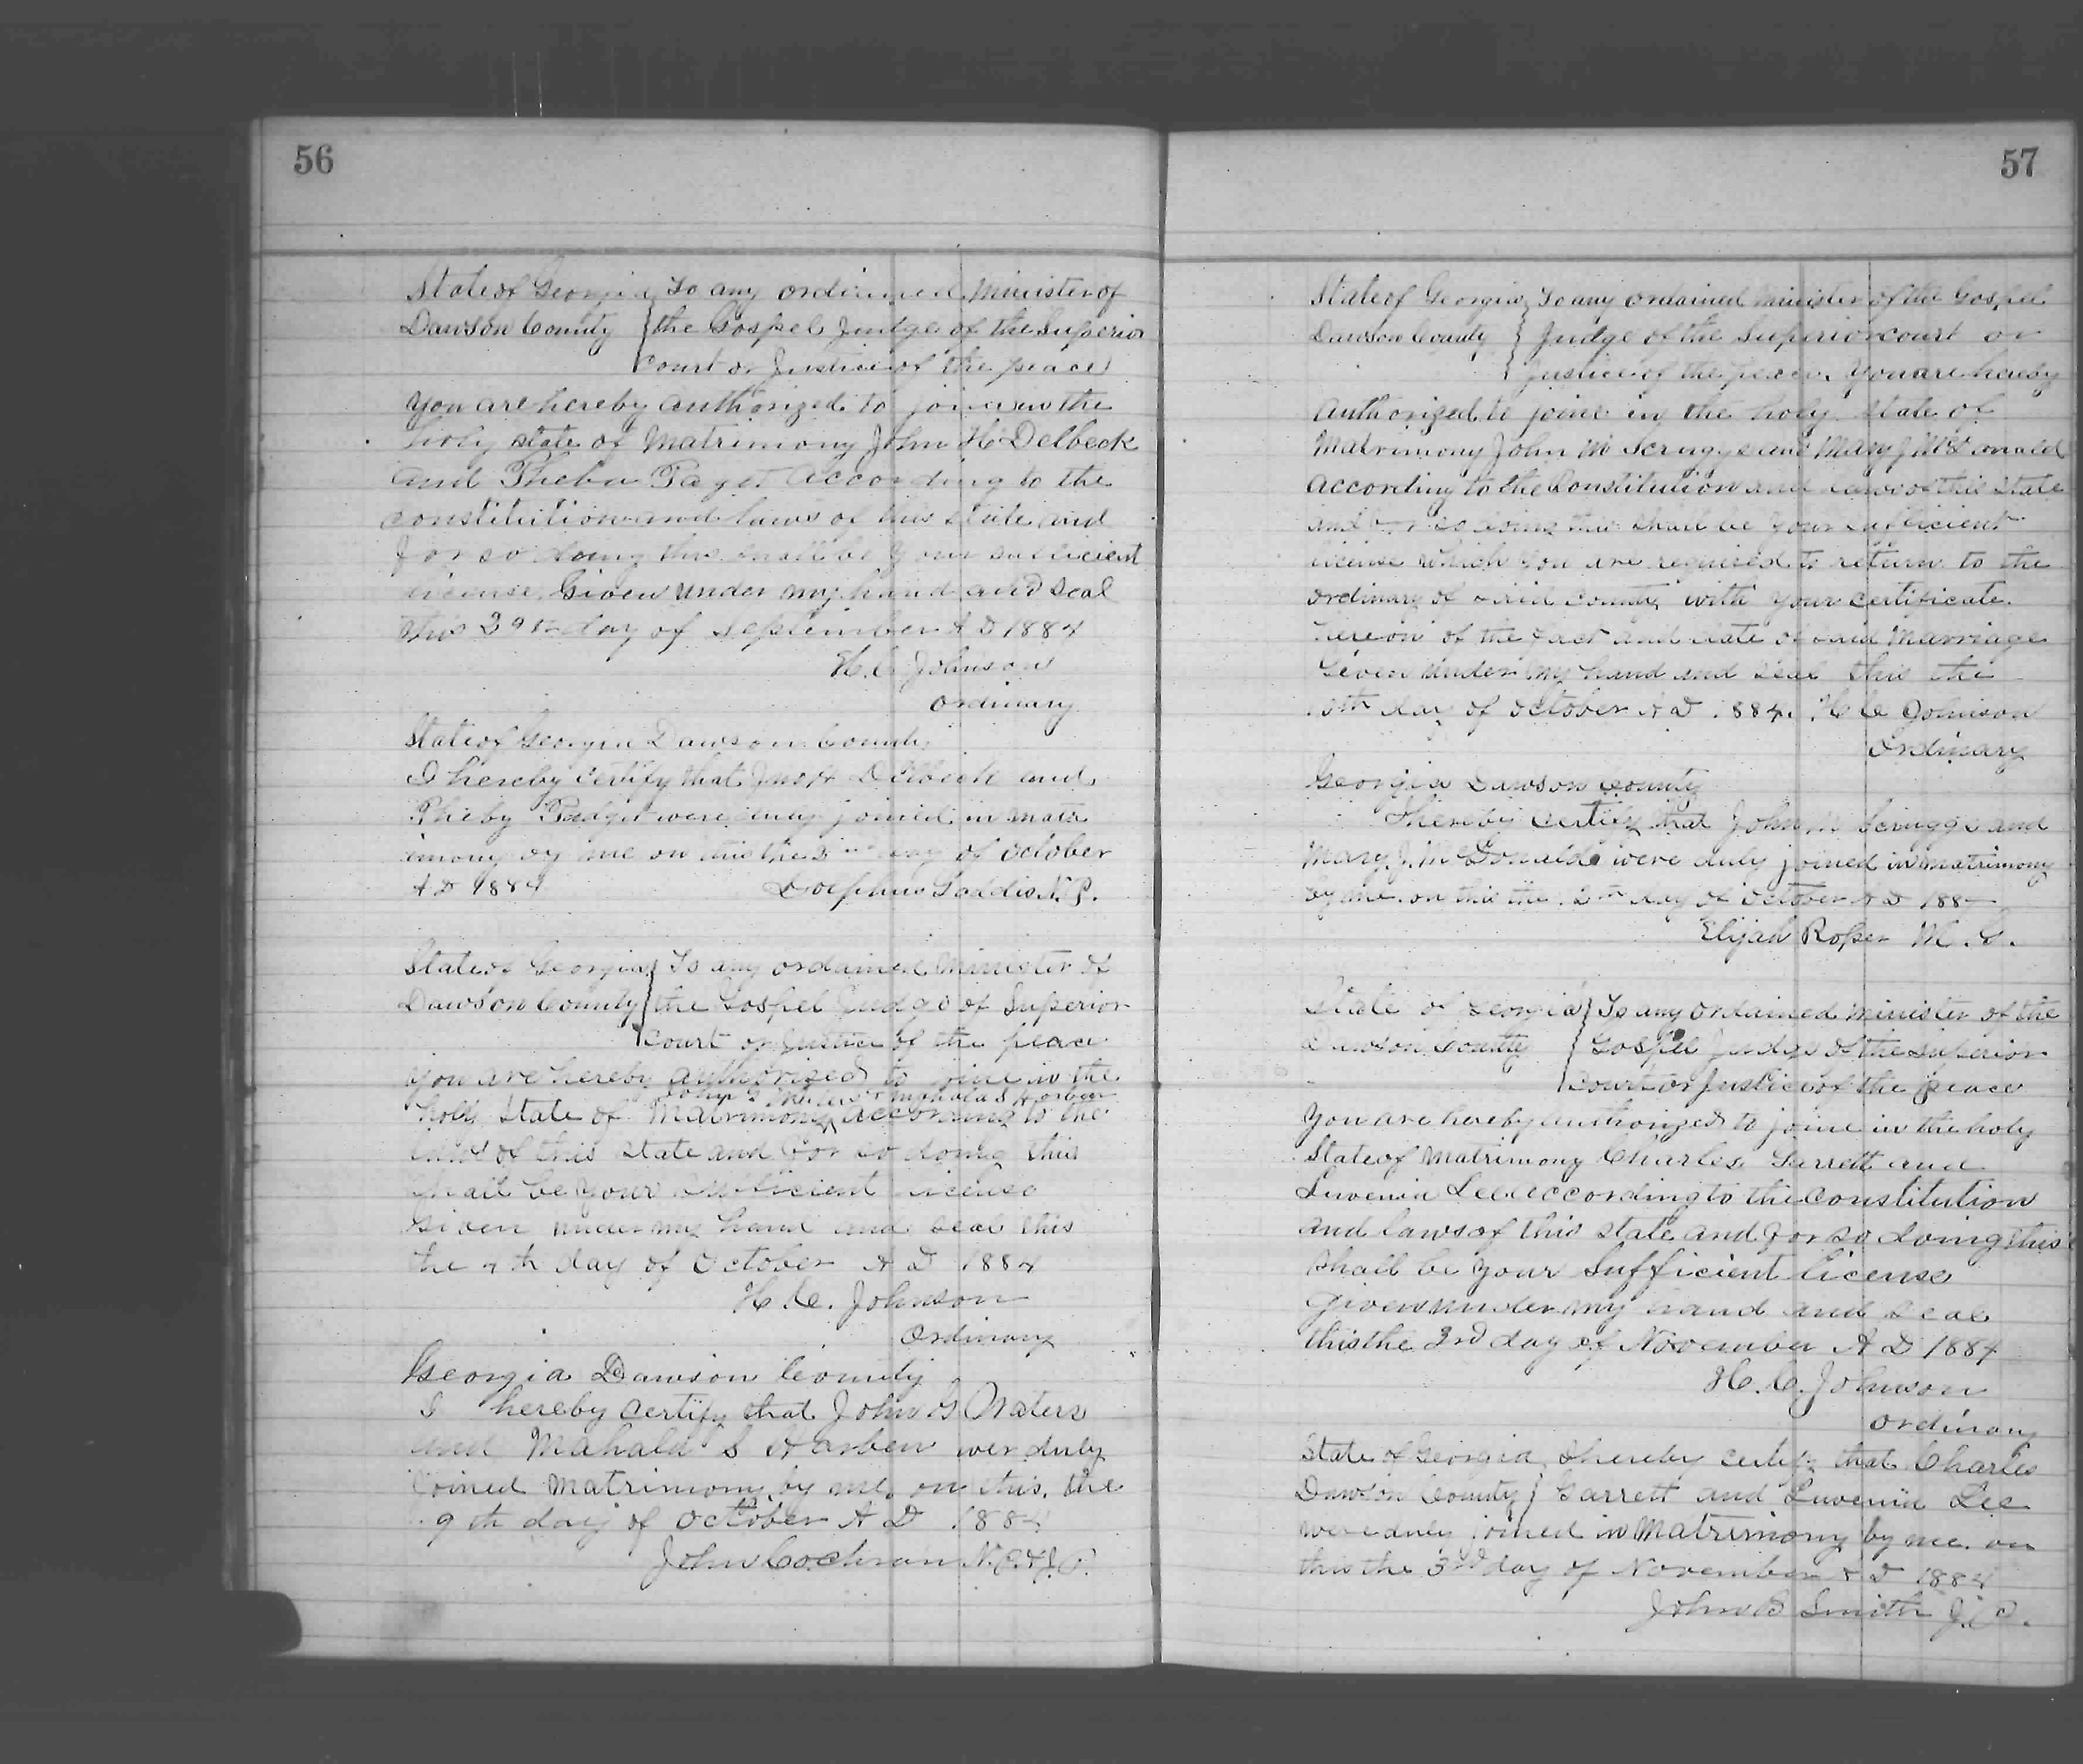 56
State of Georgia To any ordained Minister of
Dawson County the Gospel Judge of the Superior
Court or Justice of the peace
You are hereby authorized to join in the
holy state of Matrimony John H Delbeck
and Pheba Paget according to the
constitution and laws of this state and
for so doing this shall be your sufficient
license Given under my hand and seal
this 29th day of September A D 1884
H. C Johnson
Ordinary
State of Georgia Dawson County
I hereby certify that Jno H Delbeck and
Pheby Padget were duly joined in matr
imony by me on this the day of October
A D 1884 Dolphus Gaddis N. P.
State of Georgia To any ordained Minister of
Dawson County the Gospel Judge of Superior
Court or Justice of the peace
you are hereby authorized to joine in the
John G Harben
holy State of Matrimony according to the
laws of this state and for so doing this
shall be your sufficient license
Given under my hand and seal this
the 4th day of October A D 1884
H. C. Johnson
Ordinary
Georgia Dawson County
I hereby certify that John G Waters
and Mahala S Harben wer duly
joined Matrimony by me on this the
9th day of October A D 1884
John Cochran N. P. & J. P.
57
State of Georgia To any ordained minister of the Gospel
Dawson County Judge of the Superior court or
Justice of the peace. You are hereby
authorized to joine in the holy state of
Matrimony John M Scruggs and Mary J McDonald
according to the Constitution and laws of this State
and for so doing this shall be your sufficient
license which you are required to return to the
ordinary of said County with your certificate
hereon of the fact and date of said Marriage
Given under my hand and seal this the
day of October A D 1884. H C Johnson
Ordinary
Georgia Dawson County
I hereby certify that John M Scruggs and
Mary J. McDonald were duly joined in matrimony
by me on this the day of October A D 188
Elijah Roper M. G.
State of Georgia To any ordained minister of the
Dawson County Gospel Judge of the superior
Court or Justice of the peace
You are hereby authorized to joine in the holy
State of Matrimony Charles Garrett and
Luvenia Lee according to the constitution
and laws of this state and for so doing this
shall be your sufficient license
given under my hand and seal
this the 3rd day of November A D 1884
H. C. Johnson
Ordinary
State of Georgia I hereby certify that Charles
Dawson County Garrett and Luvenia Lee
were duly joined in Matrimony by me on
this the 3rd day of November A D 1884
John B Smith J. P.